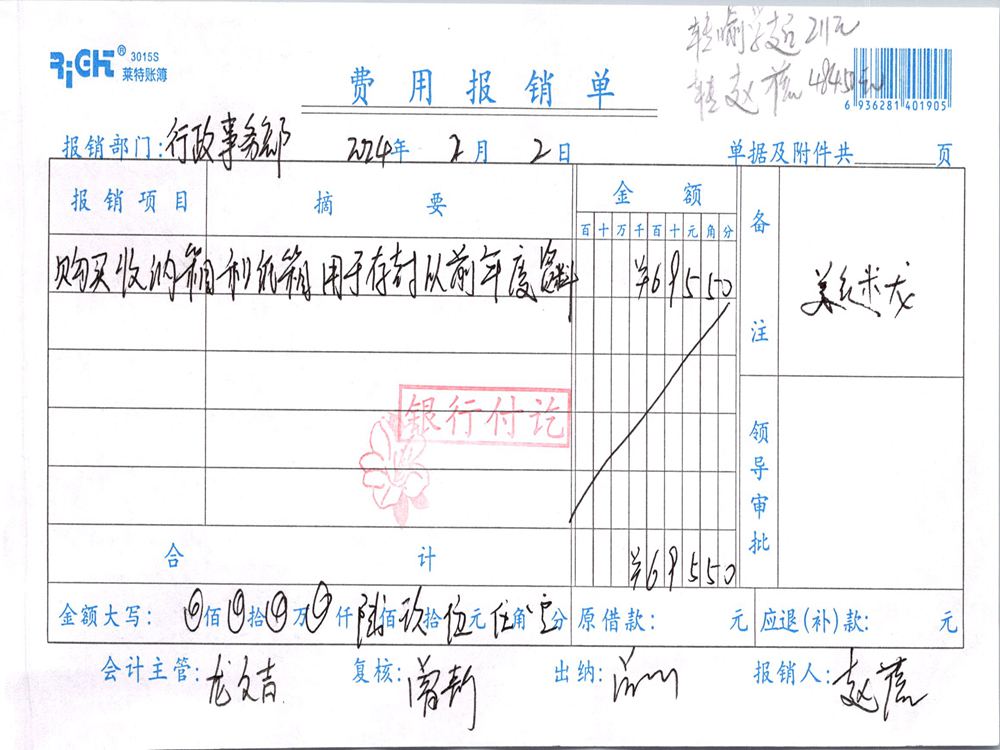 转喻学超211元
RiCH® 3015S
莱特账簿
转赵蓓484.50元
费用报销单
6 936281 401905
报销部门:行政事务部 2024年 2月 2日 单据及附件共 页
报销项目 摘要 金额 备注
百十万千百十元角分
购买收纳箱和纸箱用于存封以前年度资料 ¥69550
银行付讫
领导审批
合计 ¥69550
金额大写: 佰 拾 万 仟 陆佰玖拾伍元伍角 分 原借款: 元 应退(补)款: 元
会计主管:龙文吉 复核: 出纳: 报销人:赵蓓